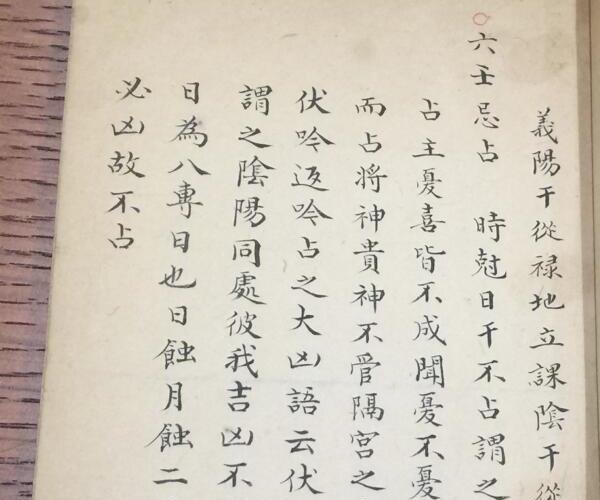 義陽干從禄地立課陰干從
六壬忌占　時尅日干不占謂之
占主憂喜皆不成聞憂不憂
而占將神貴神不管隔宮之
伏吟返吟占之大凶語云伏
謂之陰陽同處彼我吉凶不
日為八專日也日蝕月蝕二
必凶故不占